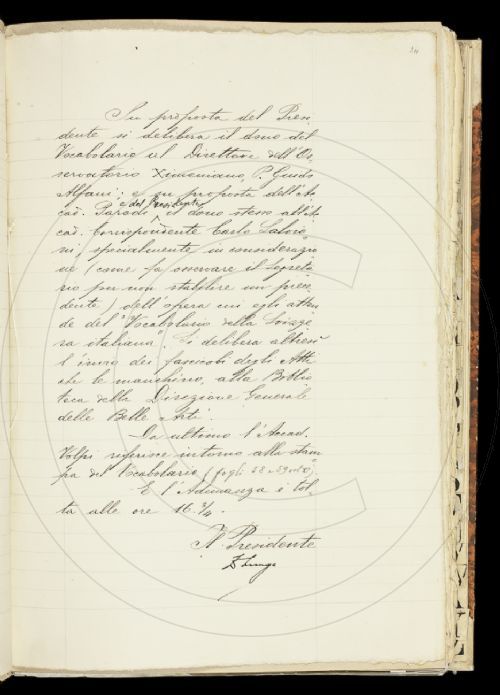 Su proposta del Presi-
dente si delibera il dono del
Vocabolario al Direttore dell'Os-
servatorio Ximeniano, P. Guido
Alfani; e su proposta dell'Ac-
cad. Parodi e del Presidente il dono stesso all'Ac-
cad. Corrispondente Carlo Salvio-
ni, specialmente in considerazio-
ne (come fa osservare il Segreta-
rio per non stabilire un prece-
dente) dell'opera cui egli atten-
de del "Vocabolario della Svizze-
ra italiana". Si delibera altresì
l'invio dei fascicoli degli Atti
che le manchino, alla Biblio-
teca della Direzione Generale
delle Belle Arti.
Da ultimo l'Accad.
Volpi referisce intorno alla stam-
pa del Vocabolario (fogli 58 e 59
E l'Adunanza è tol-
ta alle ore 16 3/4.
Il Presidente